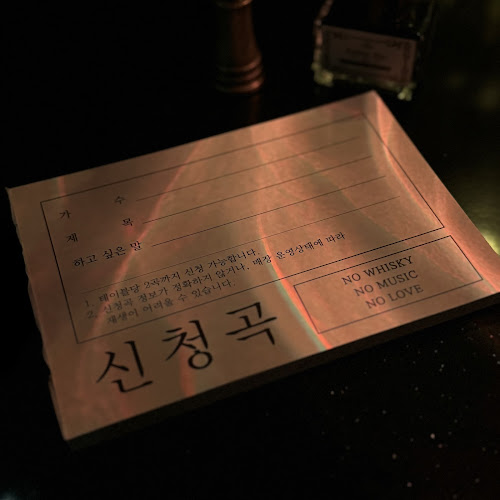 가 수
제 목
하고 싶은 말
1. 테이블당 2곡까지 신청 가능합니다
2. 신청곡 정보가 정확하지 않거나, 매장 운영상태에 따라
재생이 어려울 수 있습니다.
신청곡
NO WHISKY
NO MUSIC
NO LOVE